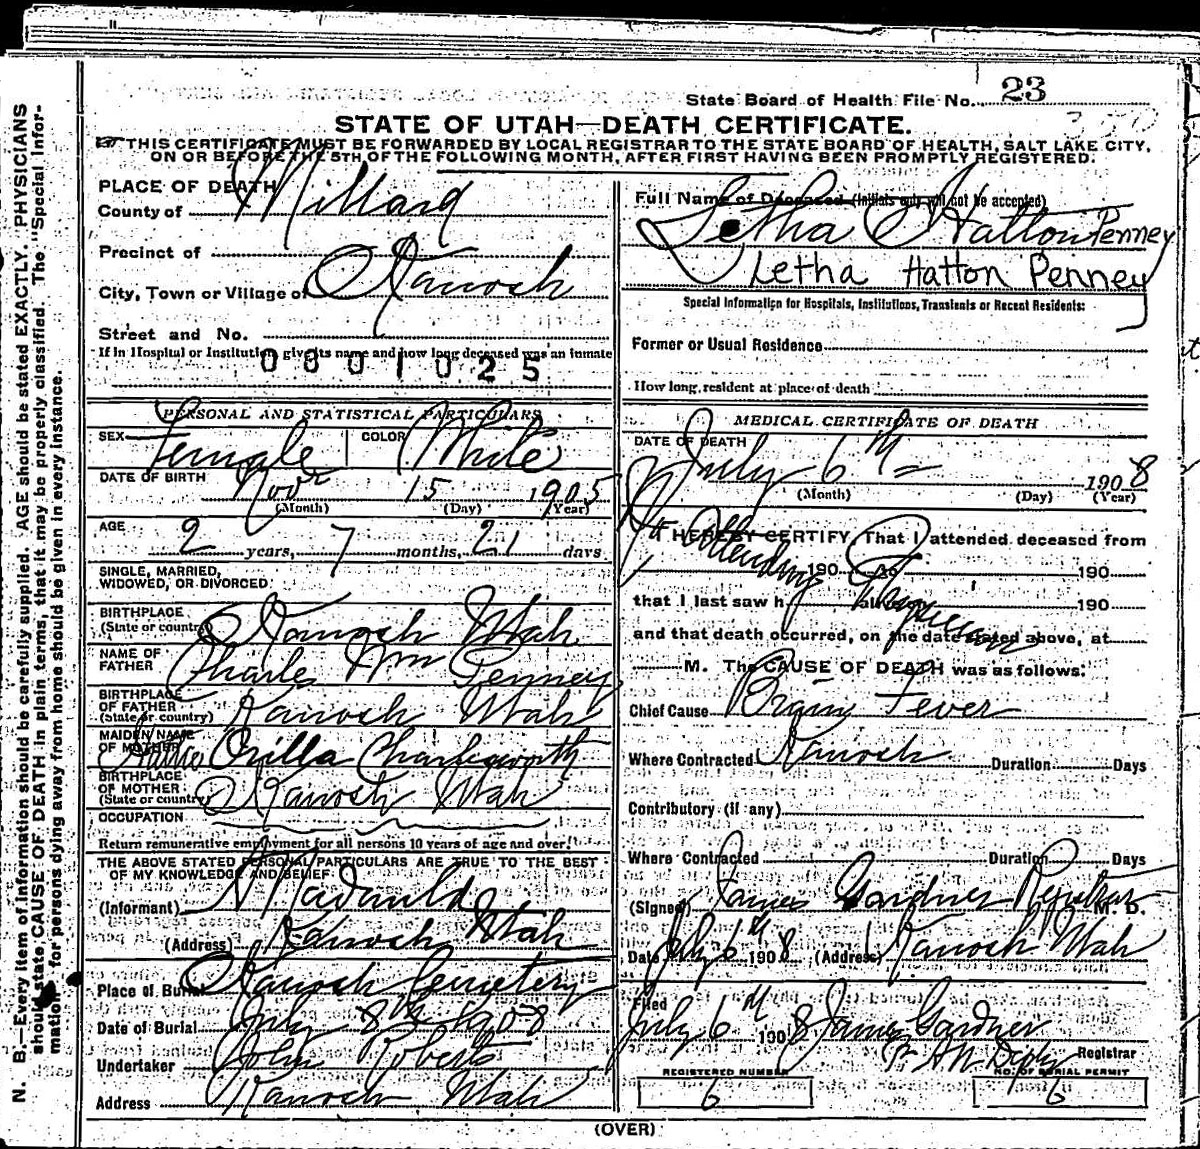 State Board of Health File No. 23
350
STATE OF UTAH—DEATH CERTIFICATE.
THIS CERTIFICATE MUST BE FORWARDED BY LOCAL REGISTRAR TO THE STATE BOARD OF HEALTH, SALT LAKE CITY,
ON OR BEFORE THE 5TH OF THE FOLLOWING MONTH, AFTER FIRST HAVING BEEN PROMPTLY REGISTERED.
N. B.—Every item of information should be carefully supplied. AGE should be stated EXACTLY. PHYSICIANS
should state CAUSE OF DEATH in plain terms, that it may be properly classified. The "Special Infor-
mation" for persons dying away from home should be given in every instance.
PLACE OF DEATH
County of Millard
Precinct of
City, Town or Village of Kanosh
Street and No.
If in Hospital or Institution, give its name and how long deceased was an inmate
0801025
PERSONAL AND STATISTICAL PARTICULARS
SEX Female COLOR White
DATE OF BIRTH Nov 15 1905
(Month) (Day) (Year)
AGE 2 years, 7 months, 21 days
SINGLE, MARRIED,
WIDOWED, OR DIVORCED
BIRTHPLACE
(State or country) Kanosh Utah
NAME OF
FATHER Charles Wm Penney
BIRTHPLACE
OF FATHER
(State or country) Kanosh Utah
MAIDEN NAME
OF MOTHER Hattie Orilla Charlesworth
BIRTHPLACE
OF MOTHER
(State or country) Kanosh Utah
OCCUPATION
Return remunerative employment for all persons 10 years of age and over.
THE ABOVE STATED PERSONAL PARTICULARS ARE TRUE TO THE BEST
OF MY KNOWLEDGE AND BELIEF
(Informant)
(Address) Kanosh Utah
Place of Burial Kanosh Cemetery
Date of Burial July 8th 1908
Undertaker John Roberts
Address Kanosh Utah
Full Name of Deceased (Initials only will not be accepted)
Letha Hatton Penney
Letha Hatton Penney
Special Information for Hospitals, Institutions, Transients or Recent Residents:
Former or Usual Residence
How long resident at place of death
MEDICAL CERTIFICATE OF DEATH
DATE OF DEATH
July 6th 1908
(Month) (Day) (Year)
I HEREBY CERTIFY, That I attended deceased from
190 to 190
No Attending Physician
that I last saw h alive on 190
and that death occurred, on the date stated above, at
M. The CAUSE OF DEATH was as follows:
Chief Cause Brain Fever
Where Contracted Kanosh Duration Days
Contributory (if any)
Where Contracted Duration Days
(Signed) James Gardner Registrar M. D.
Date July 6th 1908 (Address) Kanosh Utah
Filed
July 6th 1908 James Gardner
Registrar
REGISTERED NUMBER NO. OF BURIAL PERMIT
6 6
(OVER)